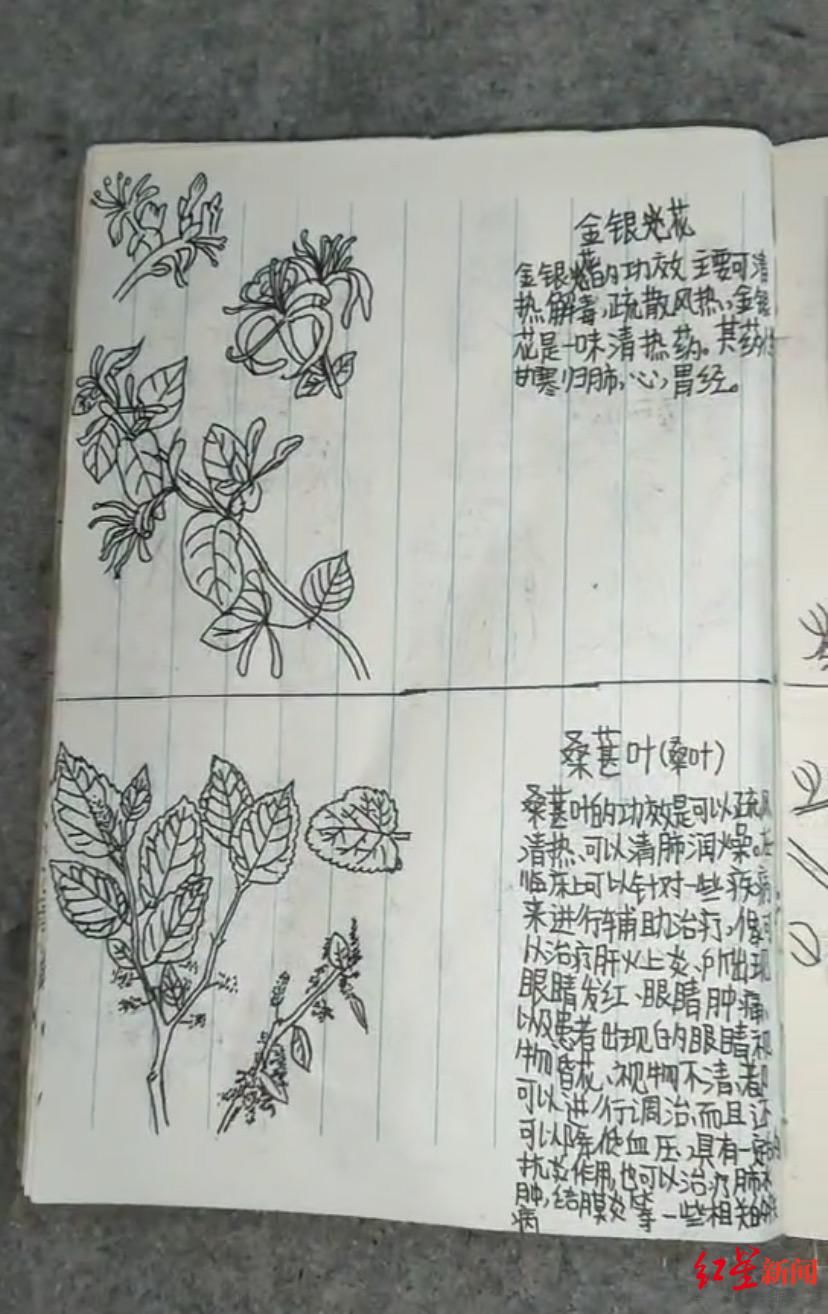 金银花
金银花的功效主要可清
热解毒，疏散风热，金银
花是一味清热药。其药性
甘寒归肺，心，胃经。
桑葚叶(桑叶)
桑葚叶的功效是可以疏风
清热、可以清肺润燥。在
临床上可以针对一些疾病
来进行辅助治疗，像可
以治疗肝火上炎、所出现
眼睛发红、眼睛肿痛、
以及患者出现的眼睛视
物昏花、视物不清、都
可以进行调治，而且还
可以降低血压、具有一定的
抗炎作用，也可以治疗肺水
肿，结膜炎等一些相关的
病
红星新闻